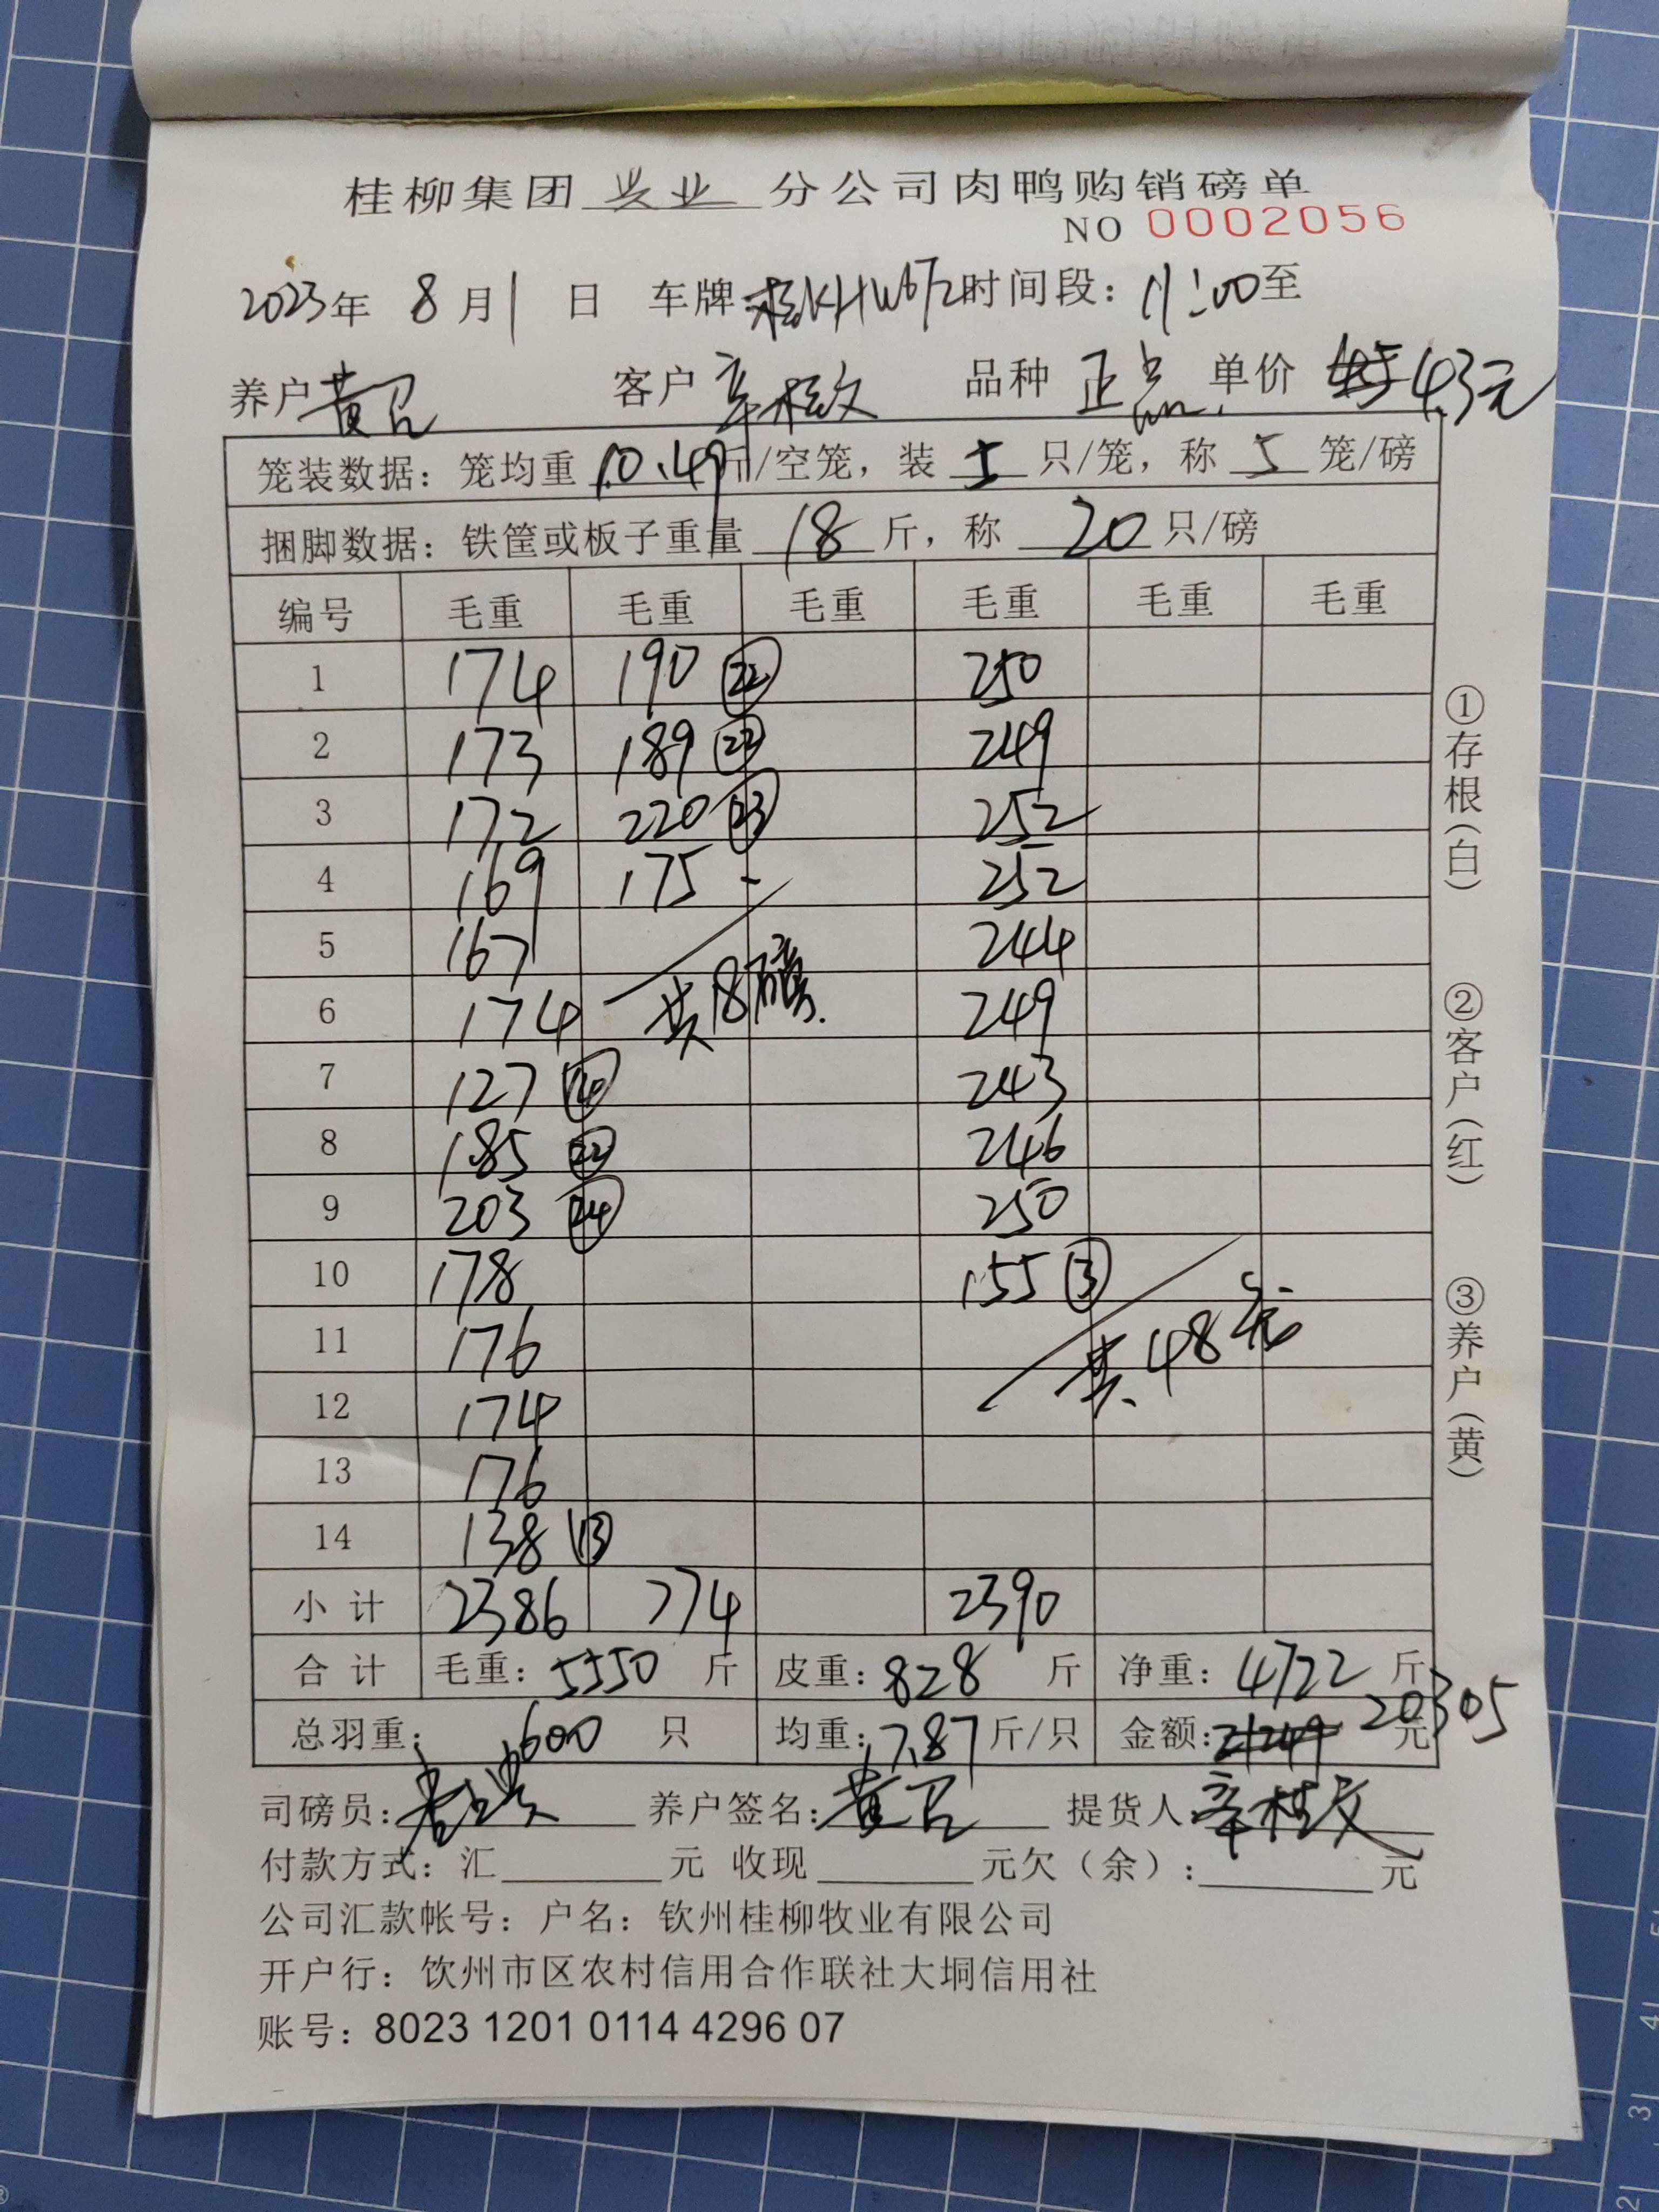 桂柳集团兴业分公司肉鸭购销磅单
NO 0002056
2023年 8月1日 车牌 桂KHW672 时间段：11:00至
养户 黄召 客户 辛桂文 品种 正点 单价 4.5 4.3元
笼装数据：笼均重 10.49 斤/空笼，装 5 只/笼，称 5 笼/磅
捆脚数据：铁筐或板子重量 18 斤，称 20 只/磅
编号 毛重 毛重 毛重 毛重 毛重 毛重
1 174 190 ㉒ 250
2 173 189 ㉒ 249
3 172 220 ㉓ 252
4 169 175 - 252
5 167 244
6 174 共18磅. 249
7 127 ⑭ 243
8 185 ㉒ 246
9 203 ㉔ 250
10 178 155 ③
11 176 共48笼
12 174
13 176
14 138 ⑬
小计 2386 774 2390
合计 毛重：5550 斤 皮重：828 斤 净重：4722 斤
总羽重：600 只 均重：7.87 斤/只 金额：21249 20305 元
司磅员： 养户签名：黄召 提货人 辛桂文
付款方式：汇 元 收现 元欠（余）： 元
公司汇款帐号：户名：钦州桂柳牧业有限公司
开户行：饮州市区农村信用合作联社大垌信用社
账号：8023 1201 0114 4296 07
①存根（白）
②客户（红）
③养户（黄）